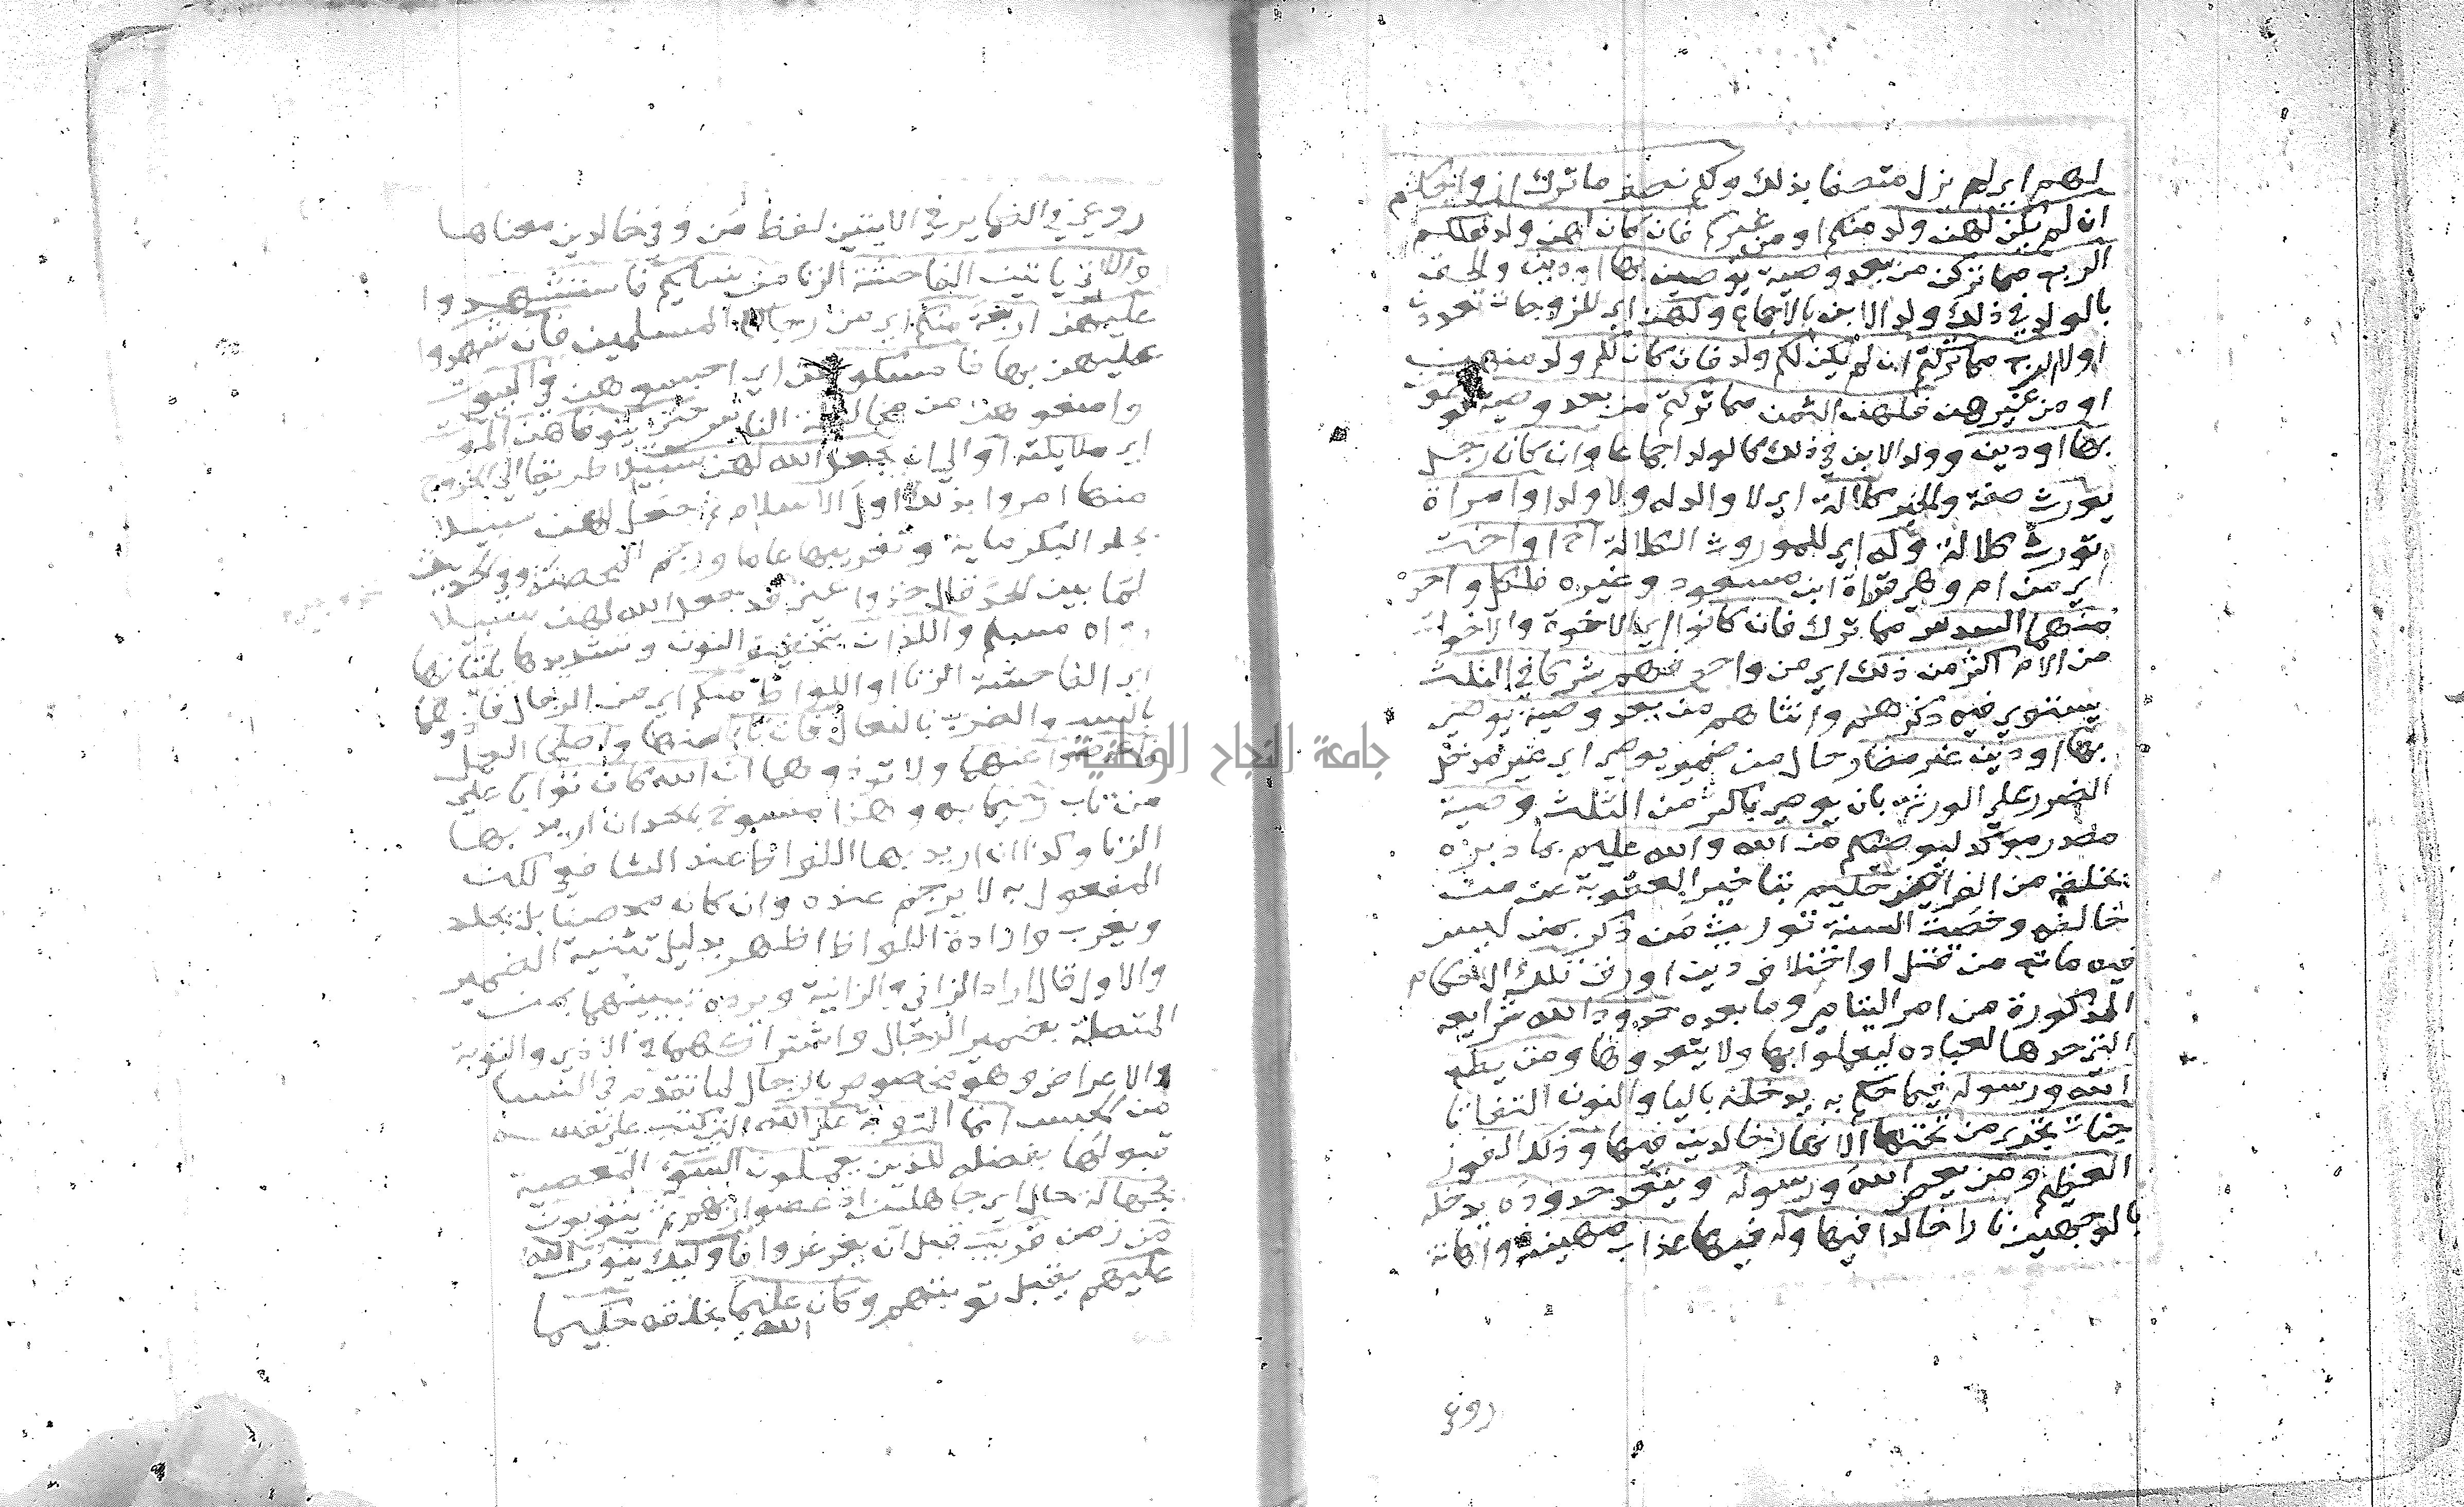 لهم اي لم يزل متصفا بذلك ولكم نصف ما ترك ازواجكم
ان لم يكن لهن ولد منكم او من غيركم فان كان لهن ولد فلكم
الربع مما تركن من بعد وصية يوصين بها او دين والحق
بالولد في ذلك ولد الابن بالاجماع ولهن اي للزوجات تعددن
اولا الربع مما تركتم ان لم يكن لكم ولد فان كان لكم ولد منهن
او من غيرهن فلهن الثمن مما تركتم من بعد وصية توصون
بها او دين وولد الابن في ذلك كالولد اجماعا وان كان رجل
يورث صفة والخبر كلالة اي لا والد له ولا ولد او امراة
تورث كلالة وله اي للموروث الكلالة اخ او اخت
اي من ام وهي قراة ابن مسعود وغيره فلكل واحد
منهما السدس مما ترك فان كانوا اي الاخوة والاخوات
من الام اكثر من ذلك اي من واحد فهم شركا في الثلث
يستوي فيه ذكرهم وانثاهم من بعد وصية يوصي
بها او دين غير مضار حال من ضمير يوصي اي غير مدخل
الضرر على الورثة بان يوصي باكثر من الثلث وصية
مصدر موكد ليوصيكم من الله والله عليم بما دبره
بخلقه من الفرايض حليم بتاخير العقوبة عن من
خالفه وخصت السنة توريث من ذكر بمن ليس
فيه مانع من قتل او اختلاف دين او رق تلك الاحكام
المذكورة من امر اليتامى وما بعده حدود الله شرايعه
التي حدها لعباده ليعملوا بها ولا يتعدوها ومن يطع
الله ورسوله فيما حكم به يدخله باليا والنون التفاتا
جنات تجري من تحتها الانهار خالدين فيها وذلك الفوز
العظيم ومن يعص الله ورسوله ويتعد حدوده يدخله
بالوجهين نارا خالدا فيها وله فيها عذاب مهين ذو اهانة
روعي
روعي في الضماير في الايتين لفظ من وفي خالدين معناها
واللاتي ياتين الفاحشة الزنا من نسايكم فاستشهدوا
عليهن اربعة منكم اي من رجالكم المسلمين فان شهدوا
عليهن بها فامسكوهن اي احبسوهن في البيوت
وامنعوهن من مخالطة الناس حتى يتوفاهن الموت
اي ملايكته او الى ان يجعل الله لهن سبيلا طريقا الى الخروج
منها امروا بذلك اول الاسلام ثم جعل لهن سبيلا
بجلد البكر ماية وتغريبها عاما ورجم المحصنة وفي الحديث
لما بين الحد قال خذوا عني قد جعل الله لهن سبيلا
رواه مسلم واللذان بتخفيف النون وتشديدها ياتيانها
اي الفاحشة الزنا او اللواط منكم اي من الرجال فاذوهما
بالسب والضرب بالنعال فان تابا منها واصلحا العمل
فاعرضوا عنهما ولا توذوهما ان الله كان توابا على
من تاب رحيما به وهذا منسوخ بالحد ان اريد بها
الزنا وكذا ان اريد بها اللواط عند الشافعي لكن
المفعول به لا يرجم عنده وان كان محصنا بل يجلد
ويغرب وارادة اللواط اظهر بدليل تثنية الضمير
والاول قال اراد الزاني والزانية ويرده تبيينهما بمن
المتصلة بضمير الرجال واشتراكهما في الاذى والتوبة
والاعراض وهو مخصوص بالرجال لما تقدم في النسا
من الحبس انما التوبة على الله التي كتب على نفسه
قبولها بفضله للذين يعملون السوء المعصية
بجهالة حال اي جاهلين اذ عصوا ربهم ثم يتوبون
من زمن قريب قبل ان يغرغروا فاوليك يتوب الله
عليهم يقبل توبتهم وكان الله عليما بخلقه حكيما
جامعة النجاح الوطنية